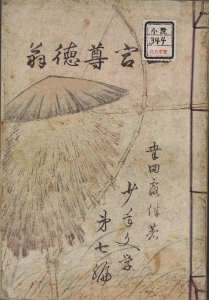 小説
344
宮尊徳翁
幸田露伴著
少年文学
第七編